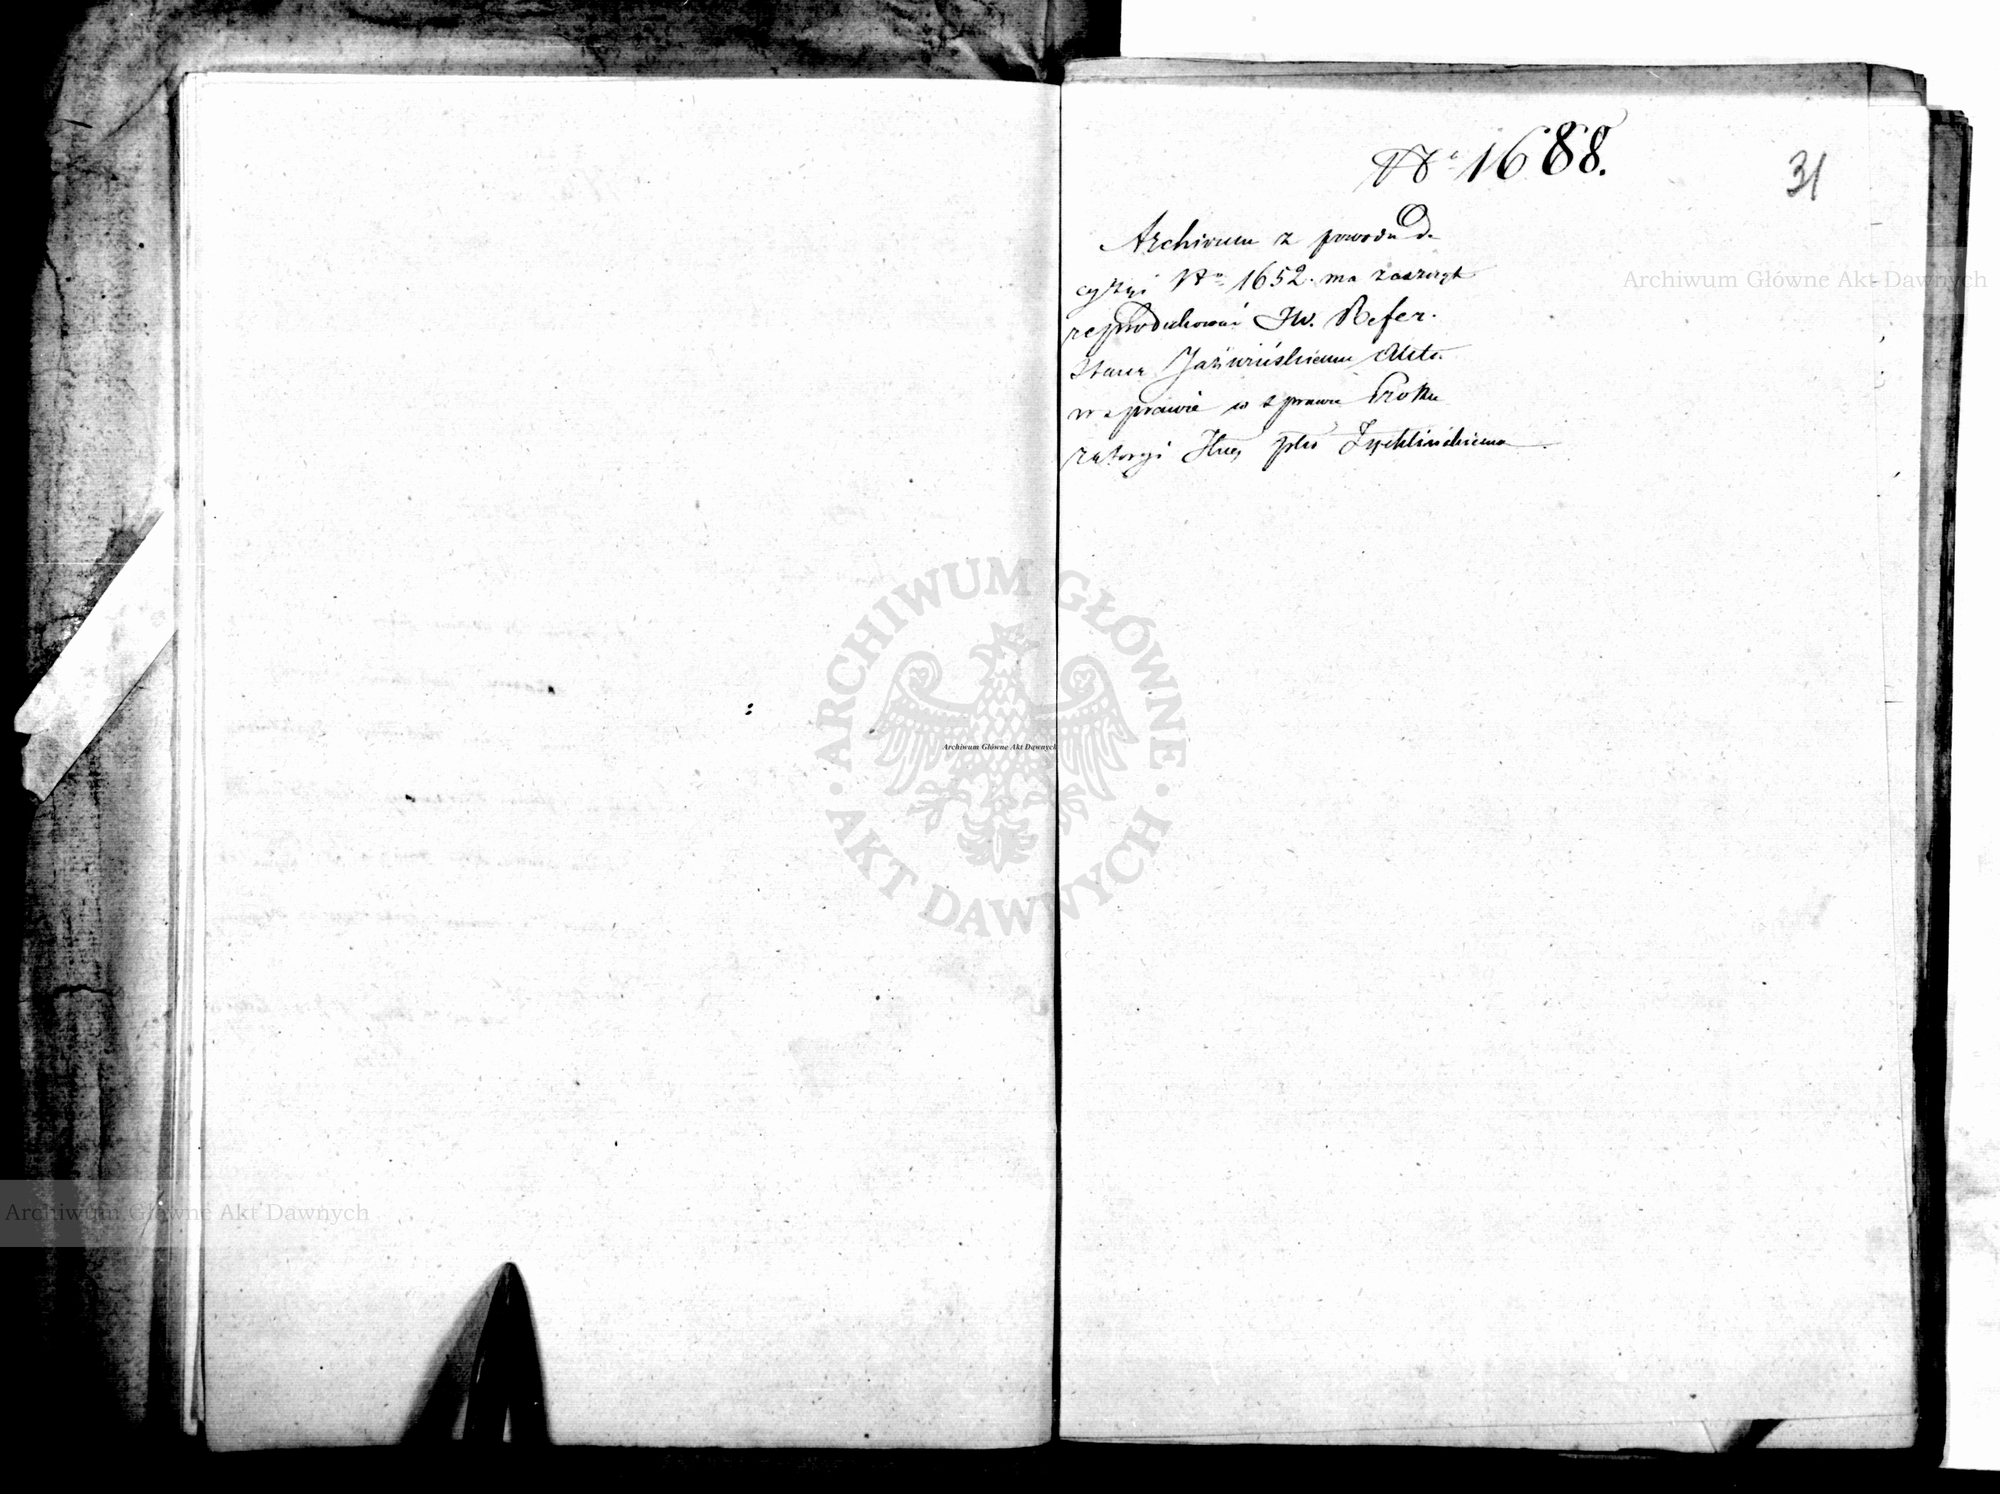 No 1688.
31
Archivum z powodu De
cyzyi No 1652. ma zaszczyt
reprodukować JW. Refer.
Stanu Jaźwińskiemu Akta
w sprawie w sprawie Proku
ratoryi Jlney plko Zychlińskiemu
Archiwum Główne Akt Dawnych
ARCHIWUM GŁÓWNE
AKT DAWNYCH
Archiwum Główne Akt Dawnych
Archiwum Główne Akt Dawnych